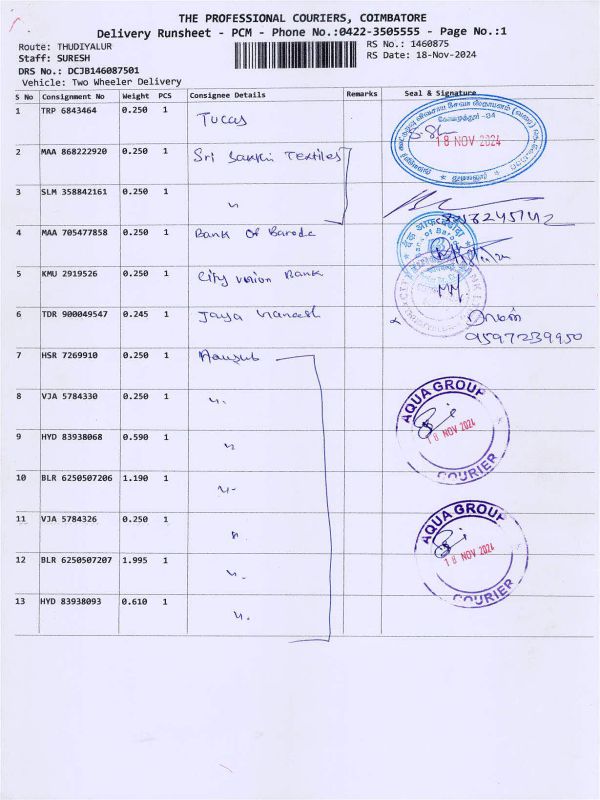 THE PROFESSIONAL COURIERS, COIMBATORE
Delivery Runsheet - PCM - Phone No.:0422-3505555 - Page No.:1
Route: THUDIYALUR RS No.: 1460875
Staff: SURESH RS Date: 18-Nov-2024
DRS No.: DCJB146087501
Vehicle: Two Wheeler Delivery
S No Consignment No Weight PCS Consignee Details Remarks Seal & Signature
1 TRP 6843464 0.250 1 Tucas
18 NOV 2024
2 MAA 868222920 0.250 1 Sri Textiles
3 SLM 358842161 0.250 1 "
4 MAA 705477858 0.250 1 Bank Of Baroda
5 KMU 2919526 0.250 1 City Union Bank
6 TDR 900049547 0.245 1 Jaya
9597239950
7 HSR 7269910 0.250 1
8 VJA 5784330 0.250 1 "
AQUA GROUP
18 NOV 2024
COURIER
9 HYD 83938068 0.590 1 "
10 BLR 6250507206 1.190 1 "
11 VJA 5784326 0.250 1 "
AQUA GROUP
18 NOV 2024
COURIER
12 BLR 6250507207 1.995 1 "
13 HYD 83938093 0.610 1 "